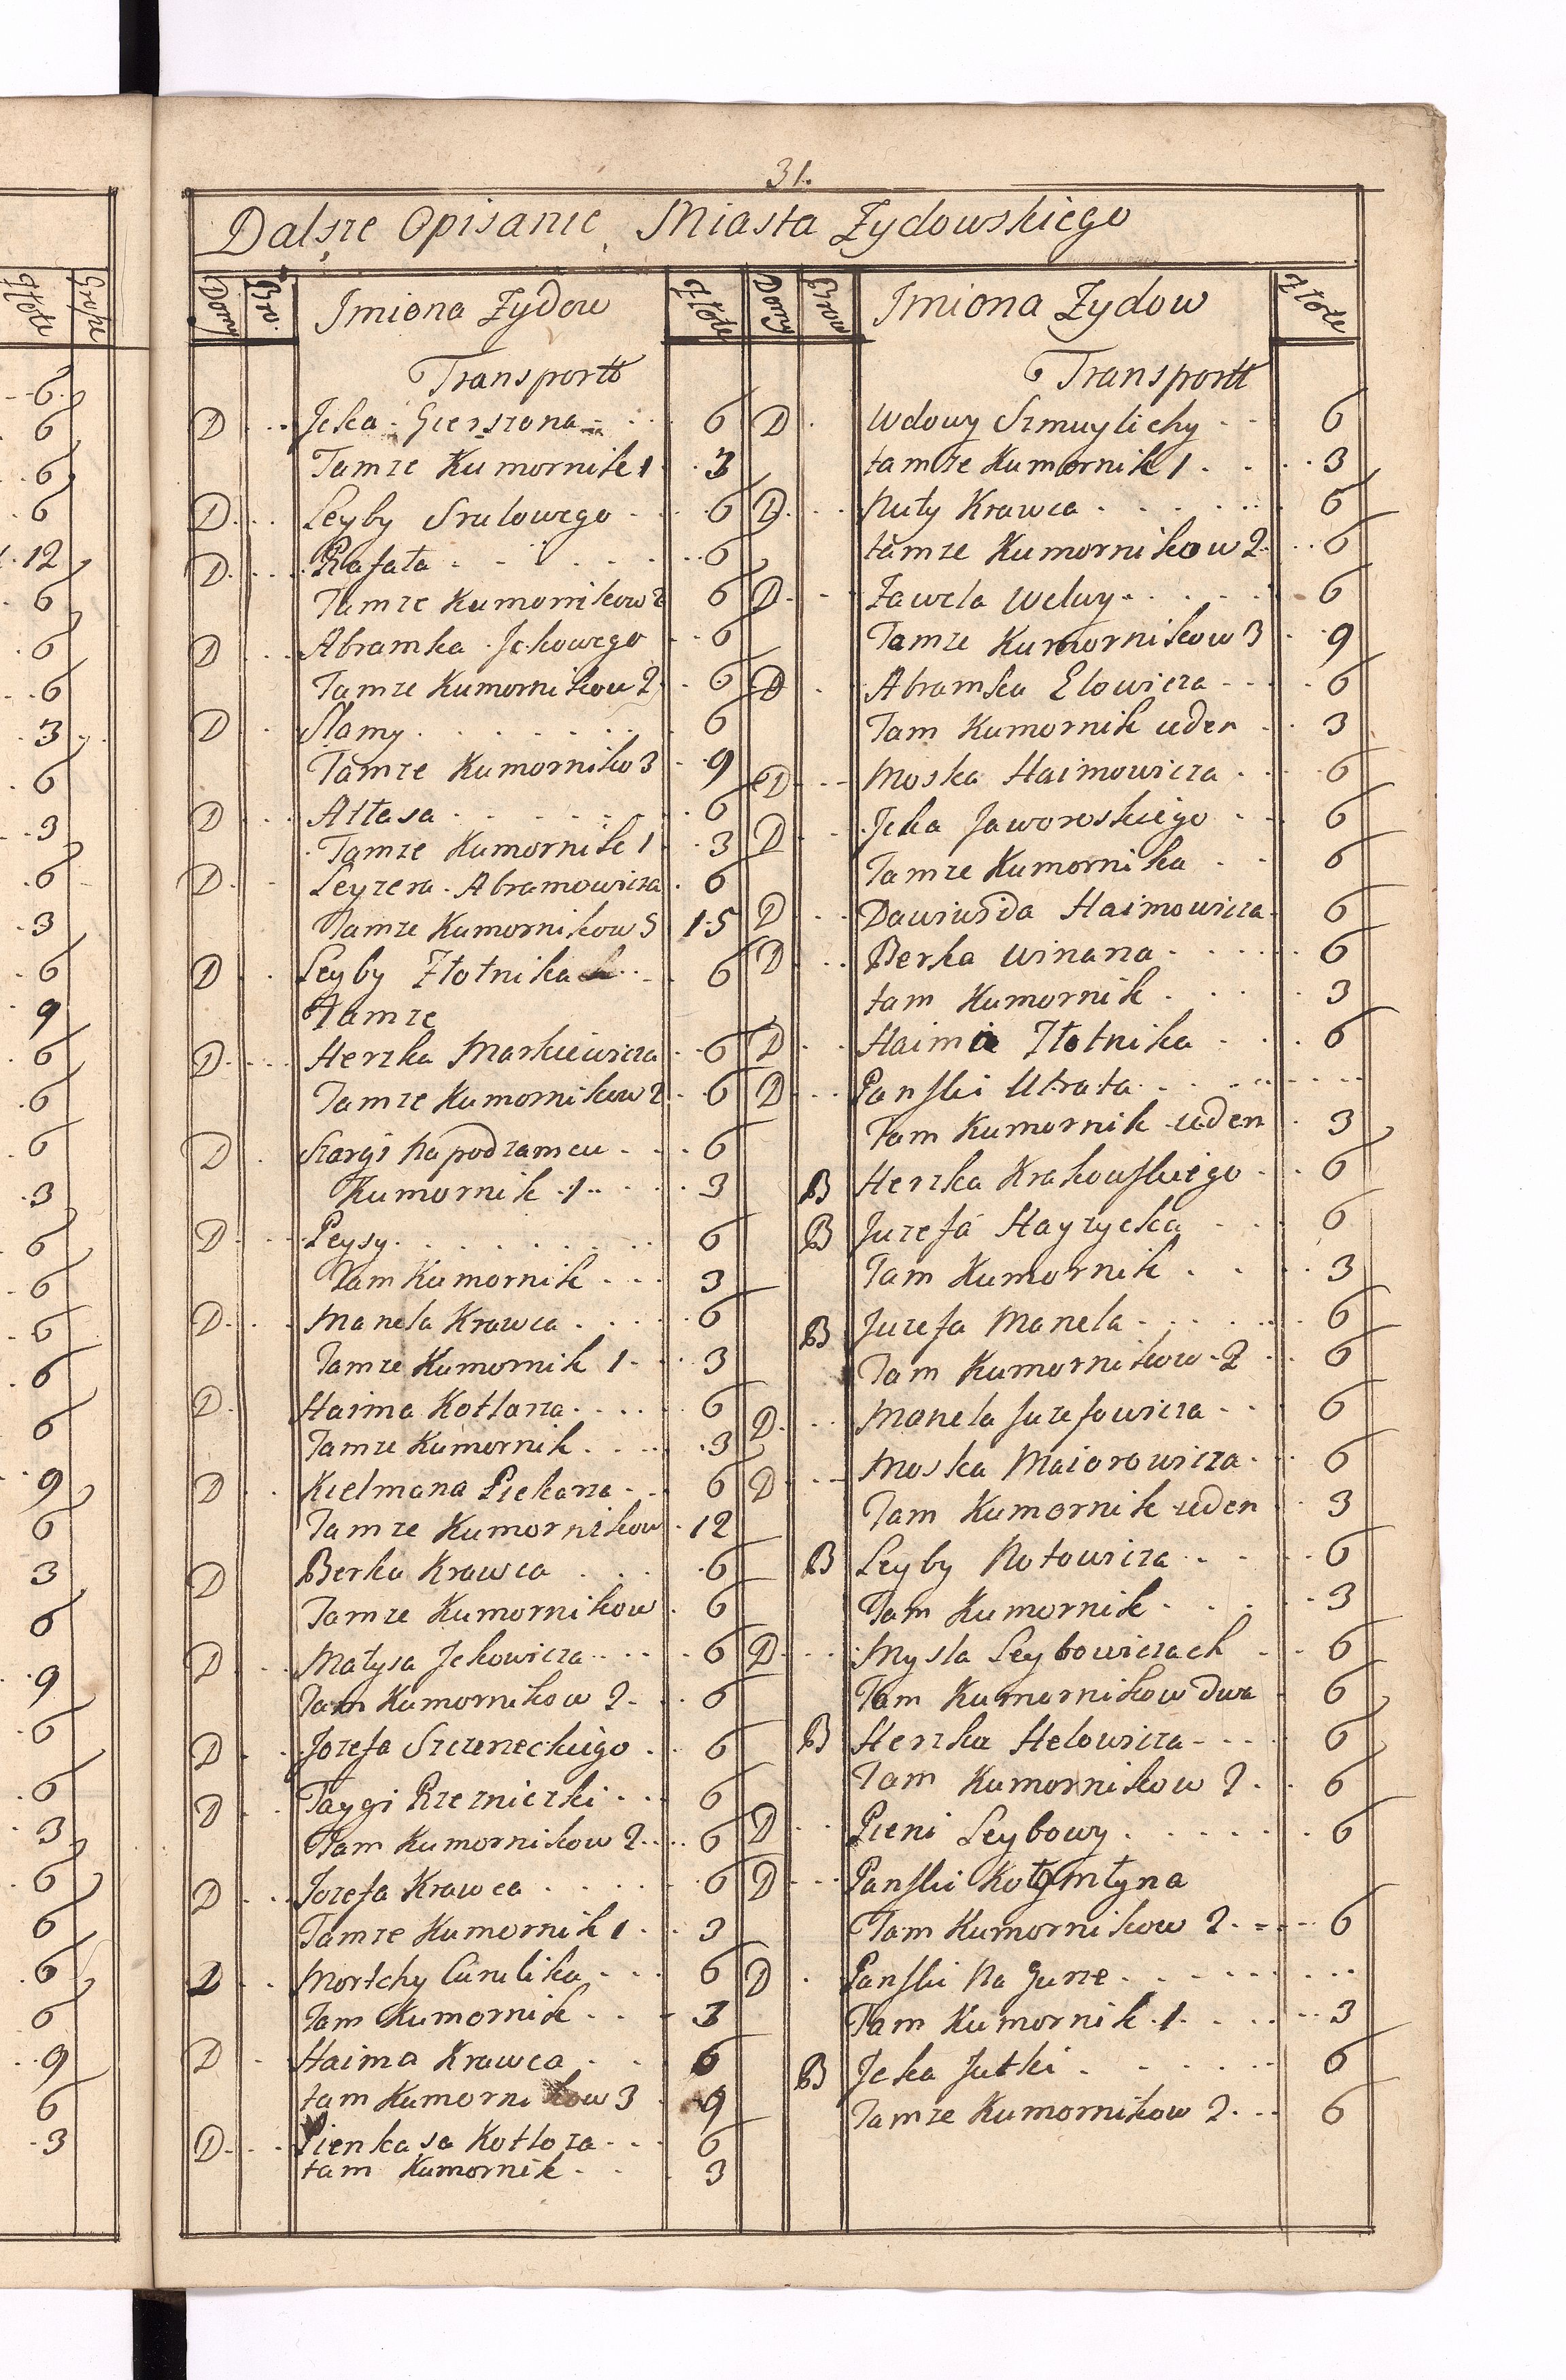 31.
Dalsze Opisanie Miasta Zydowskiego
Domy Bro. Imiona Zydow Złote
Transportt
D Jcka Gierszona 6
Tamze Kumornik 1 3
D Leyby Srulowego 6
D Rafała 6
Tamze Kumornikow 2 6
D Abramka Jckowego 6
Tamze Kumornikow 2 6
D Slamy 6
Tamze Kumorniko 3 9
D Attasa 6
Tamze Kumornik 1 3
D Leyzera Abramowicza 6
Tamze Kumornikow 5 15
D Leyby Złotnika 6
Tamze
D Herzka Markiewicza 6
Tamze Kumornikow 2 6
D Szargi Na podzamcu 6
Kumornik 1 3
D Peysy 6
Tam Kumornik 3
D Manela Krawca 6
Tamze Kumornik 1 3
D Haima Kotlarza 6
Tamze Kumornik 3
D Kielmana Piekarza 6
Tamze Kumornikow 12
D Berka Krawca 6
Tamze Kumornikow 6
D Matysa Jckowicza 6
Tam Kumornikow 2 6
D Jozefa Szczeneckiego 6
D Taygi Rzezniczki 6
Tam Kumornikow 2 6
D Jozefa Krawca 6
Tamze Kumornik 1 3
D Mortchy Cirulika 6
Tam Kumornik 3
D Haima Krawca 6
tam Kumornikow 3 9
D Pienkasa Kotlorza 6
tam Kumornik 3
Domy Brow Imiona Zydow Złote
Transportt
D Wdowy Szmuylichy 6
tamze Kumornik 1 3
D Nuty Krawca 6
tamze Kumornikow 2 6
D Zawela Welwy 6
Tamze Kumornikow 3 9
D Abramka Elowicza 6
Tam Kumornik ieden 3
D Moska Haimowicza 6
D Jcka Jaworoskiego 6
Tamze Kumornika 6
D Dawiwida Haimowicza 6
D Berka Winarza 6
tam Kumornik 3
D Haima Złotnika 6
D Panski Utrata
Tam Kumornik ieden 3
B Herzka Krakowskiego 6
B Juzefa Hayzycka 6
Tam Kumornik 3
B Juzefa Manela 6
Tam Kumornikow 2 6
D Manela Juzefowicza 6
D Moska Maiorowicza 6
Tam Kumornik ieden 3
B Leyby Notowicza 6
Tam Kumornik 3
D Mysla Leybowiczach 6
Tam Kumornikow dwa 6
B Herzka Helowicza 6
Tam Kumornikow 2 6
D Pieni Leybowy 6
D Panski Kołomłyna
Tam Kumornikow 2 6
D Panski Na Gurze
Tam Kumornik 1 3
B Jcka Jutki 6
Tamze Kumornikow 2 6
Złote Grosze
6
6
6
6
12
6
6
6
3
6
3
6
3
6
9
6
6
6
3
6
6
6
6
6
9
6
3
6
9
6
6
3
6
6
6
6
9
6
3